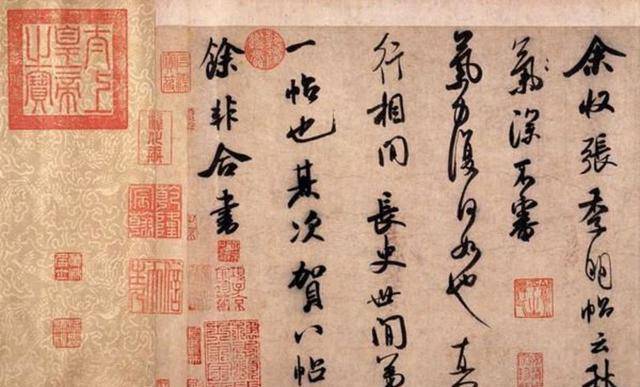 余收張季明帖云秋
氣深不審
氣力復何如也 真
行相間 長史世間第
一帖也其次賀八帖
餘非合書
太上皇帝之寶
乾隆宸翰